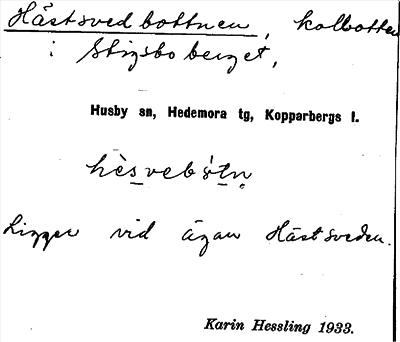 Hästsvedbottnen, kolbotten
i Stigsbo berget,
Husby sn, Hedemora tg, Kopparbergs l.
hèsvebòtn̥
Ligger vid ägan Hästsveden.
Karin Hessling 1933.